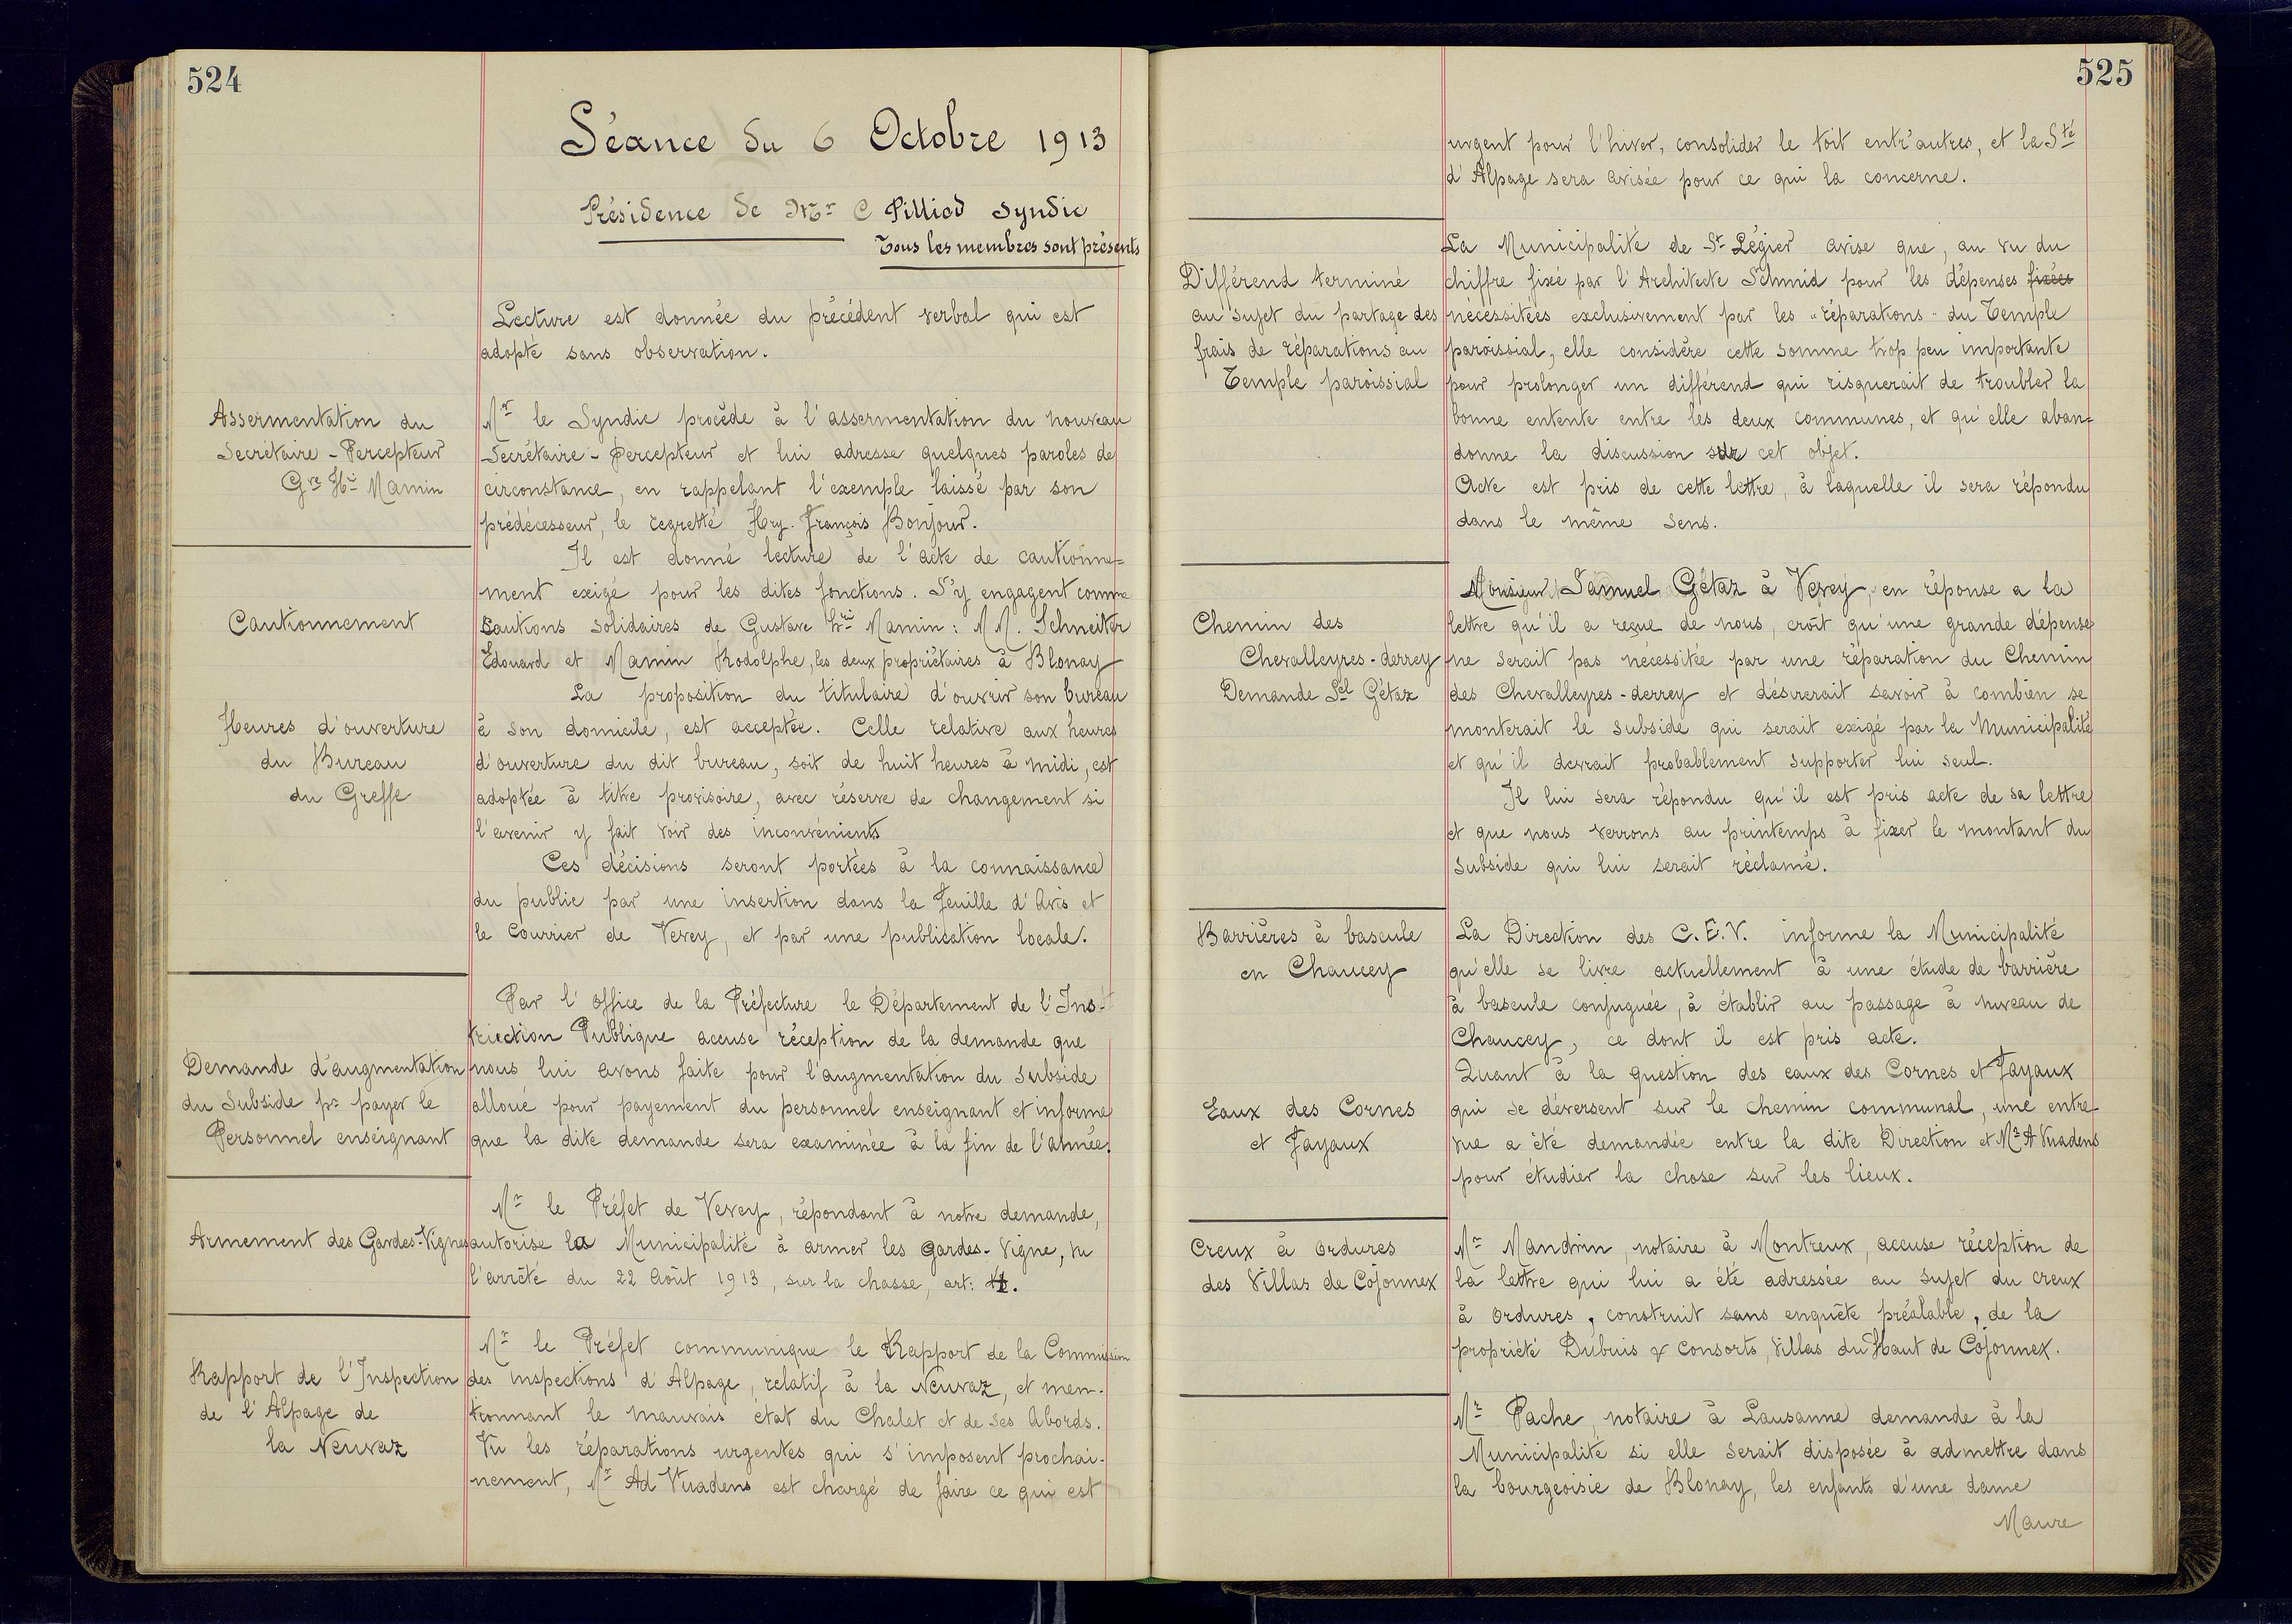 524
Séance du 6 Octobre 1913
Présidence de Mr C Pilliod Syndic
Tous les membres sont présents
Lecture est donnée du précédent verbal qui est
adopté sans observation.
Assermentation du
Secrétaire - Percepteur
Gve Hri Mamin
Mr le Syndic procède à l'assermentation du nouveau
Secrétaire - Percepteur et lui adresse quelques paroles de
circonstance, en rappelant l'exemple laissé par son
prédécesseur, le regretté Hry. François Bonjour.
Il est donné lecture de l'acte de cautionne=
ment exigé pour les dites fonctions. S'y engagent comme
Cautionnement
cautions solidaires de Gustave Hri Mamin : MM. Schneiter
Edouard et Mamin Rodolphe, les deux propriétaires à Blonay
Heures d'ouverture
du Bureau
du Greffe
La proposition du titulaire d'ouvrir son bureau
à son domicile, est acceptée. Celle relative aux heures
d'ouverture du dit bureau, soit de huit heures à midi, est
adoptée à titre provisoire, avec réserve de changement si
l'avenir y fait voir des inconvénients
Ces décisions seront portées à la connaissance
du public par une insertion dans la Feuille d'Avis et
le Courrier de Vevey, et par une publication locale.
Par l'office de la Préfecture le Département de l'Ins-
truction Publique accuse réception de la demande que
Demande d'augmentation
du Subside pr payer le
Personnel enseignant
nous lui avons faite pour l'augmentation du subside
alloué pour payement du personnel enseignant et informe
que la dite demande sera examinée à la fin de l'année.
Mr le Préfet de Vevey, répondant à notre demande,
Armement des Gardes-Vignes
autorise la Municipalité à armer les gardes-vigne, vu
l'arrêté du 22 Août 1913, sur la chasse, art:
Mr le Préfet communique le Rapport de la Commission
Rapport de l'Inspection
de l'Alpage de
la Neuvaz
des inspections d'Alpage, relatif à la Neuvaz, et men-
tionnant le mauvais état du Chalet et de ses Abords.
Vu les réparations urgentes qui s'imposent prochai-
nement, Mr Ad Vuadens est chargé de faire ce qui est
525
urgent pour l'hiver, consolider le toit entr'autres, et la Sté
d'Alpage sera avisée pour ce qui la concerne.
La Municipalité de St Légier avise que, au vu du
Différend terminé
au sujet du partage des
frais de réparations au
Temple paroissial
chiffre fixé par l'Architecte Schmid pour les dépenses fixées
nécessitées exclusivement par les "réparations" du Temple
paroissial, elle considère cette somme trop peu importante
pour prolonger un différend qui risquerait de troubler la
bonne entente entre les deux communes, et qu'elle aban=
donne la discussion sur cet objet.
Acte est pris de cette lettre, à laquelle il sera répondu
dans le même sens.
Monsieur Samuel Gétaz à Vevey, en réponse a la
Chemin des
Chevalleyres-derrey
Demande Sel Gétaz
lettre qu'il a reçue de nous, croit qu'une grande dépense
ne serait pas nécessitée par une réparation du Chemin
des Chevalleyres-derrey et désirerait savoir à combien se
monterait le subside qui serait exigé par la Municipalité
et qu'il devrait probablement supporter lui seul.
Il lui sera répondu qu'il est pris acte de sa lettre
et que nous verrons au printemps à fixer le montant du
subside qui lui serait réclamé.
Barrières à bascule
en Chaucey
La Direction des C.E.V. informe la Municipalité
qu'elle se livre actuellement à une étude de barrière
à bascule conjuguée, à établir au passage à niveau de
Chaucey, ce dont il est pris acte.
Eaux des Cornes
et Fayaux
Quant à la question des eaux des Cornes et Fayaux
qui se déversent sur le chemin communal, une entre
vue a été demandée entre la dite Direction et Mr A Vuadens
pour étudier la chose sur les lieux.
Creux à ordures
des Villas de Cojonnex
Mr Mandrin, notaire à Montreux, accuse réception de
la lettre qui lui a été adressée au sujet du creux
à ordures, construit sans enquête préalable, de la
propriété Dubuis & consorts, Villas du Haut de Cojonnex.
Mr Pache, notaire à Lausanne demande à la
Municipalité si elle serait disposée à admettre dans
la bourgeoisie de Blonay, les enfants d'une dame
Maure